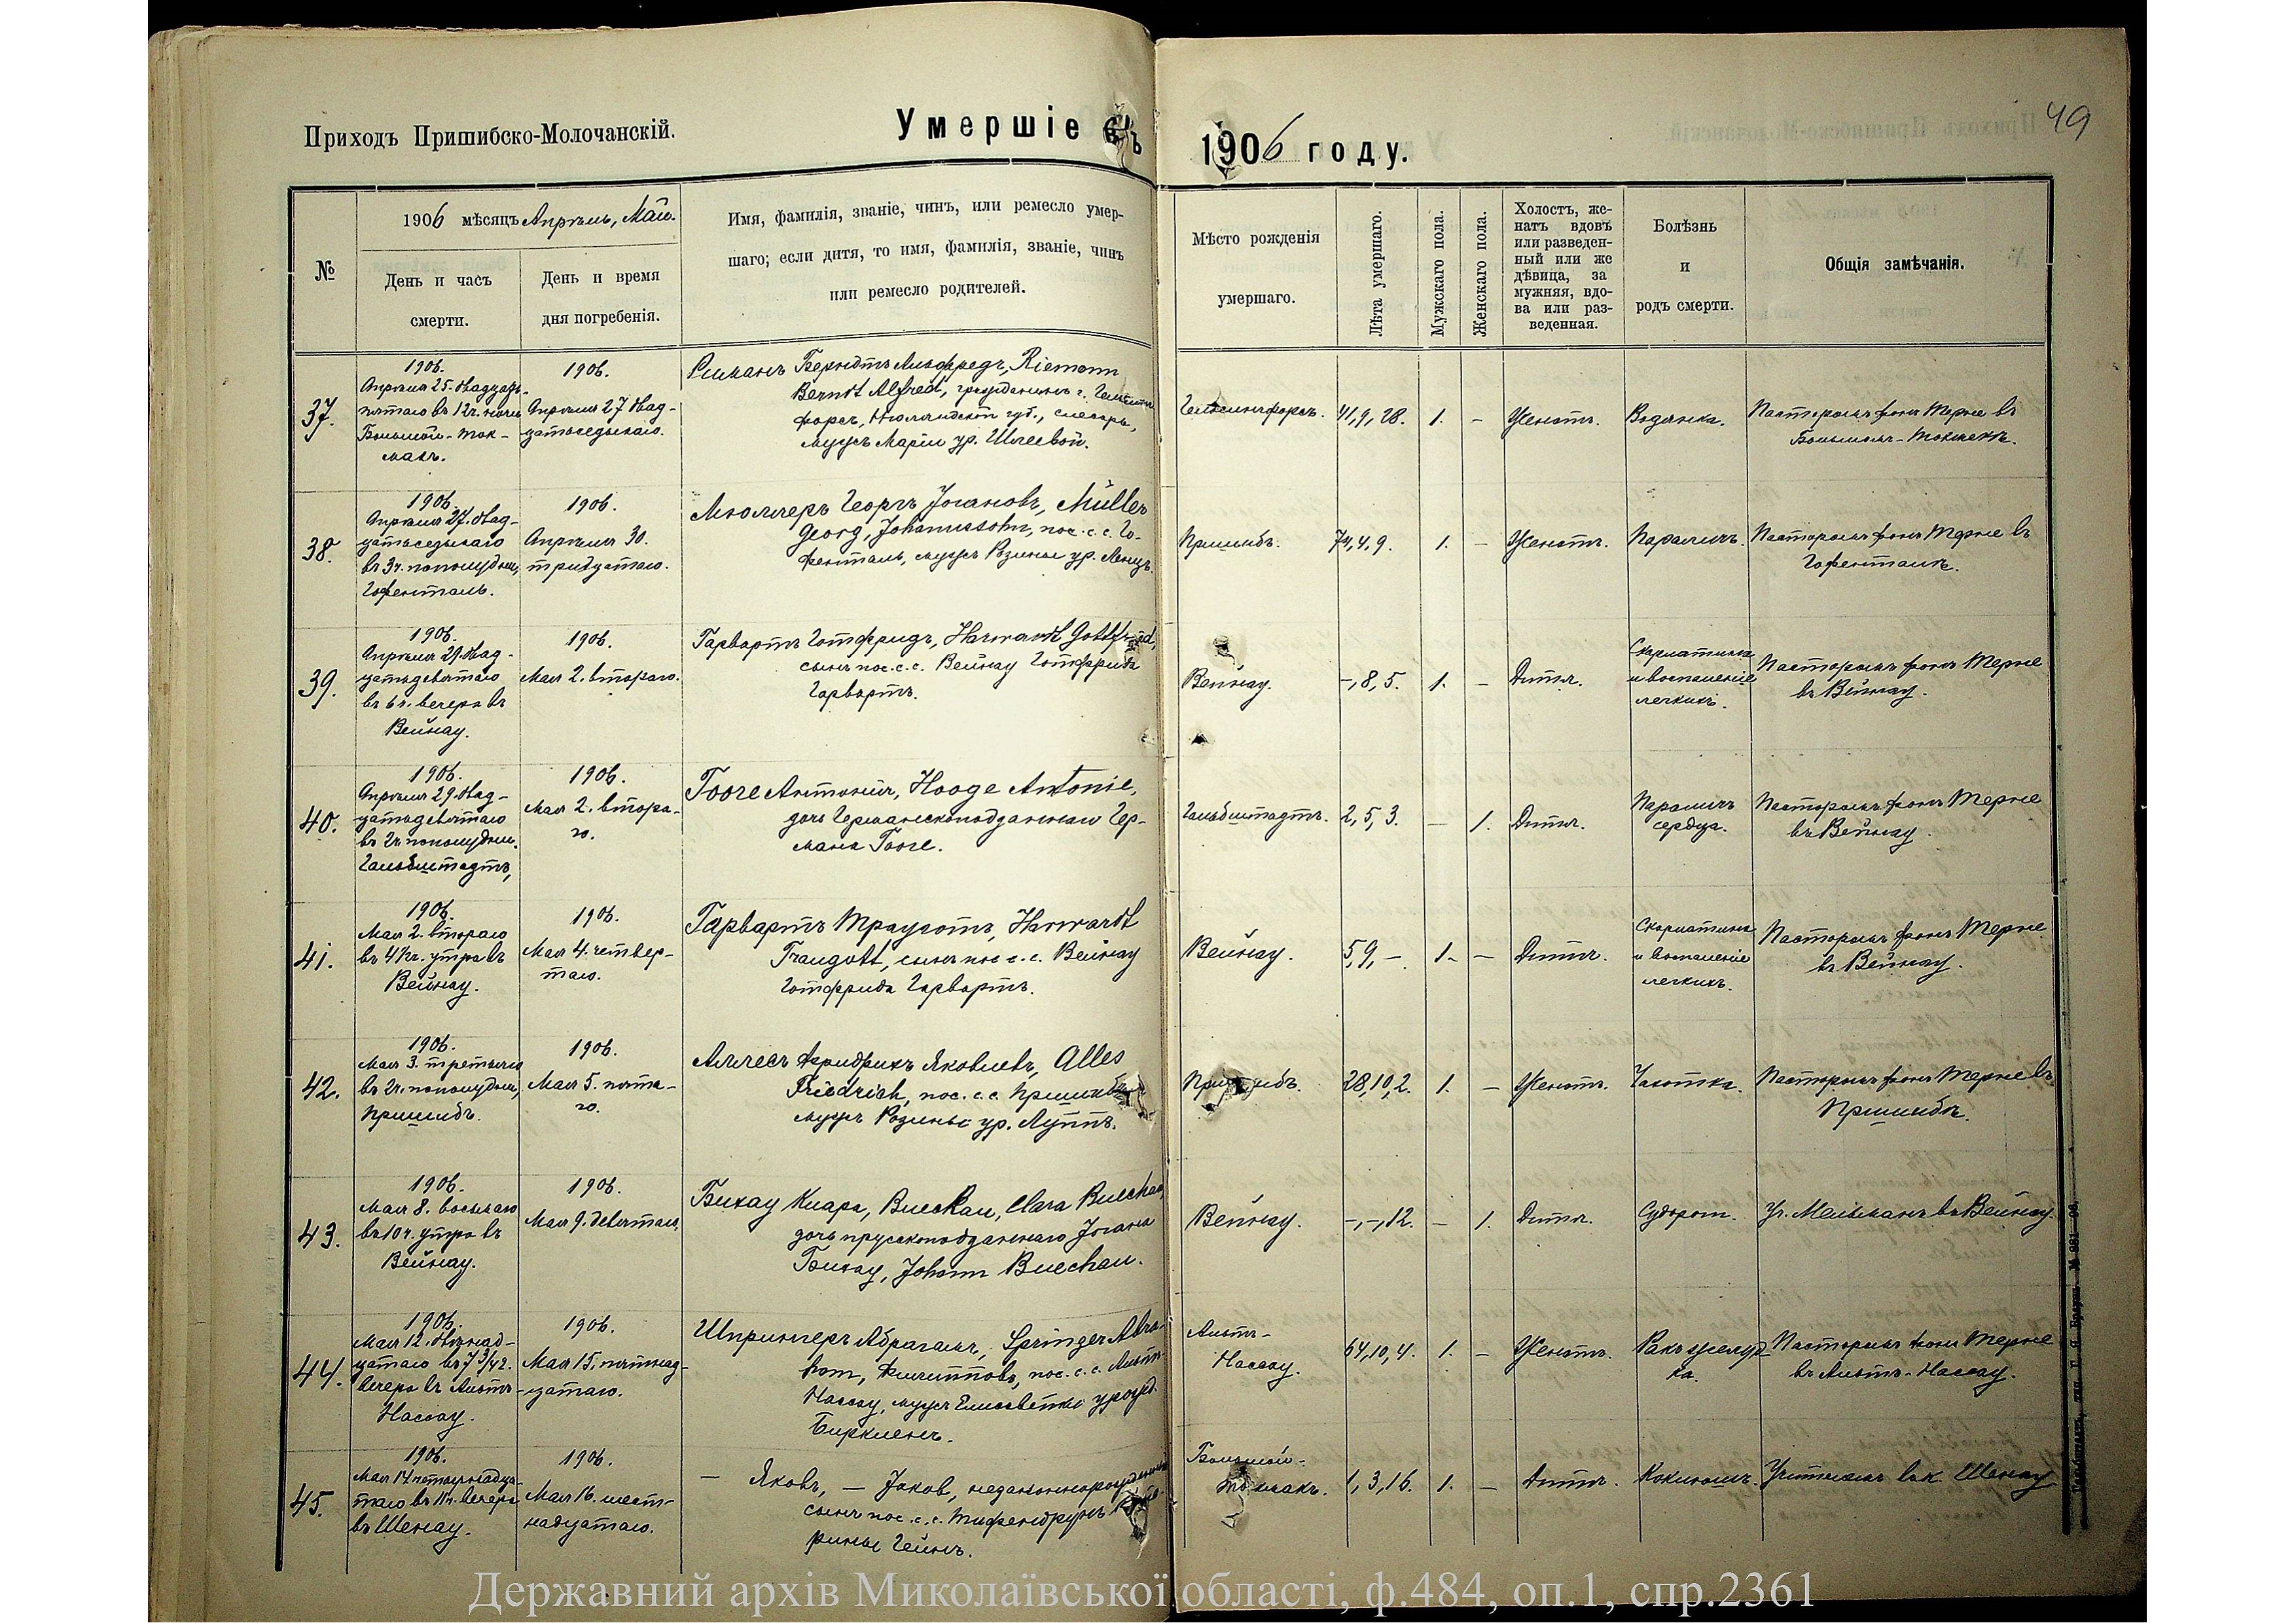 Приходъ Пришибско-Молочанскій.
Умершіе въ
1906 году.
49
№
1906 мѣсяцъ Апрѣль, Май.
День и часъ
смерти.
День и время
дня погребенія.
Имя, фамилія, званіе, чинъ, или ремесло умер-
шаго; если дитя, то имя, фамилія, званіе, чинъ
или ремесло родителей.
Мѣсто рожденія
умершаго.
Лѣта умершаго.
Мужскаго пола.
Женскаго пола.
Холостъ, же-
натъ вдовъ
или разведен-
ный или же
дѣвица, за
мужняя, вдо-
ва или раз-
веденная.
Болѣзнь
и
родъ смерти.
Общія замѣчанія.
37.
1906.
Апрѣля 25. двадцать-
пятаго въ 12 ч. ночи
Большой-Ток-
макъ.
1906.
Апрѣля 27 двад-
цатьседьмаго.
Риманъ Берндтъ Альфредъ, Riemann
Berndt Alfred, гражданинъ г. Гельсинг-
форсъ, Нюландской губ., слесарь,
мужъ Маріи ур. Шлеевой.
Гельсингфорсъ.
41, 9, 28.
1.
–
Женатъ.
Водянка.
Пасторомъ фонъ Терне въ
Большомъ-Токмакѣ.
38.
1906.
Апрѣля 27. двад-
цатьседьмаго
въ 3 ч. пополудни,
Гофенталь.
1906.
Апрѣля 30.
тридцатаго.
Мюллеръ Георгъ Јогановъ, Müller
Georg, Johannessohn, пос. с. с. Го-
фенталь, мужъ Розины ур. Ленцъ.
Пришибъ.
74, 4, 9.
1.
–
Женатъ.
Параличъ.
Пасторомъ фонъ Терне въ
Гофенталѣ.
39.
1906.
Апрѣля 29. двад-
цатьдевятаго
въ 6 ч. вечера въ
Вейнау.
1906.
Мая 2. втораго.
Гарвартъ Готфридъ, Harwardt Gottfried,
сынъ пос. с. с. Вейнау Готфрида
Гарвартъ.
Вейнау.
–, 8, 5.
1.
–
Дитя.
Скарлатина
и воспаленіе
легкихъ.
Пасторомъ фонъ Терне
въ Вейнау.
40.
1906.
Апрѣля 29. двад-
цатьдевятаго
въ 2 ч. пополудни.
Гальбштадтъ,
1906.
Мая 2. втора-
го.
Гооге Антонія, Hooge Antonie,
дочь Германскоподданнаго Гер-
мана Гооге.
Гальбштадтъ.
2, 5, 3.
–
1.
Дитя.
Параличъ
сердца.
Пасторомъ фонъ Терне
въ Вейнау.
41.
1906.
Мая 2. втораго
въ 4 ч. утра въ
Вейнау.
1906.
Мая 4. четвер-
таго.
Гарвартъ Трауготъ, Harwardt
Traugott, сынъ пос с. с. Вейнау
Готфрида Гарвартъ.
Вейнау.
5, 9, –.
1.
–
Дитя.
Скарлатина
и воспаленіе
легкихъ.
Пасторомъ фонъ Терне
въ Вейнау.
42.
1906.
Мая 3. третьяго
въ 2 ч. пополудни,
Пришибъ.
1906.
Мая 5. пята-
го.
Аллесъ Фридрихъ Яковлевъ, Alles
Friedrich, пос. с. с. Пришибъ
мужъ Розины ур. Луппъ.
Пришибъ.
28, 10, 2.
1.
–
Женатъ.
Чахотка.
Пасторомъ фонъ Терне въ
Пришибѣ.
43.
1906.
Мая 8. восьмаго
въ 10 ч. утра въ
Вейнау.
1906.
Мая 9. девятаго.
Бихау Клара, Buechau, Clara Buechau,
дочь прусскоподданнаго Јогана
Бихау, Johann Buechau.
Вейнау.
–, –, 12.
–
1.
Дитя.
Судорги.
Уч. Мельманъ въ Вейнау.
44.
1906.
Мая 12. двѣнад-
цатаго въ 7 3/4 ч.
вечера въ Альтъ-
Нассау.
1906.
Мая 15. пятнад-
цатаго.
Шпрингеръ Абрагамъ, Springer Abra-
ham, Филипповъ, пос. с. с. Альтъ-
Нассау, мужъ Елисаветы урожд.
Биркленъ.
Альтъ-
Нассау.
64, 10, 4.
1.
–
Женатъ.
Ракъ желуд-
ка.
Пасторомъ фонъ Терне
въ Альтъ-Нассау.
45.
1906.
Мая 14 четырнадца-
таго въ 11 ч. вечера
въ Шенау.
1906.
Мая 16. шест-
надцатаго.
– Яковъ, – Jakob, незаконнорожденный
сынъ пос. с. с. Тифенбрунъ Кате-
рины Гейнъ.
Большой-
Токмакъ.
1, 3, 16.
1.
–
Дитя.
Коклюшъ.
Учителемъ въ к. Шенау
Державний архів Миколаївської області, ф.484, оп.1, спр.2361